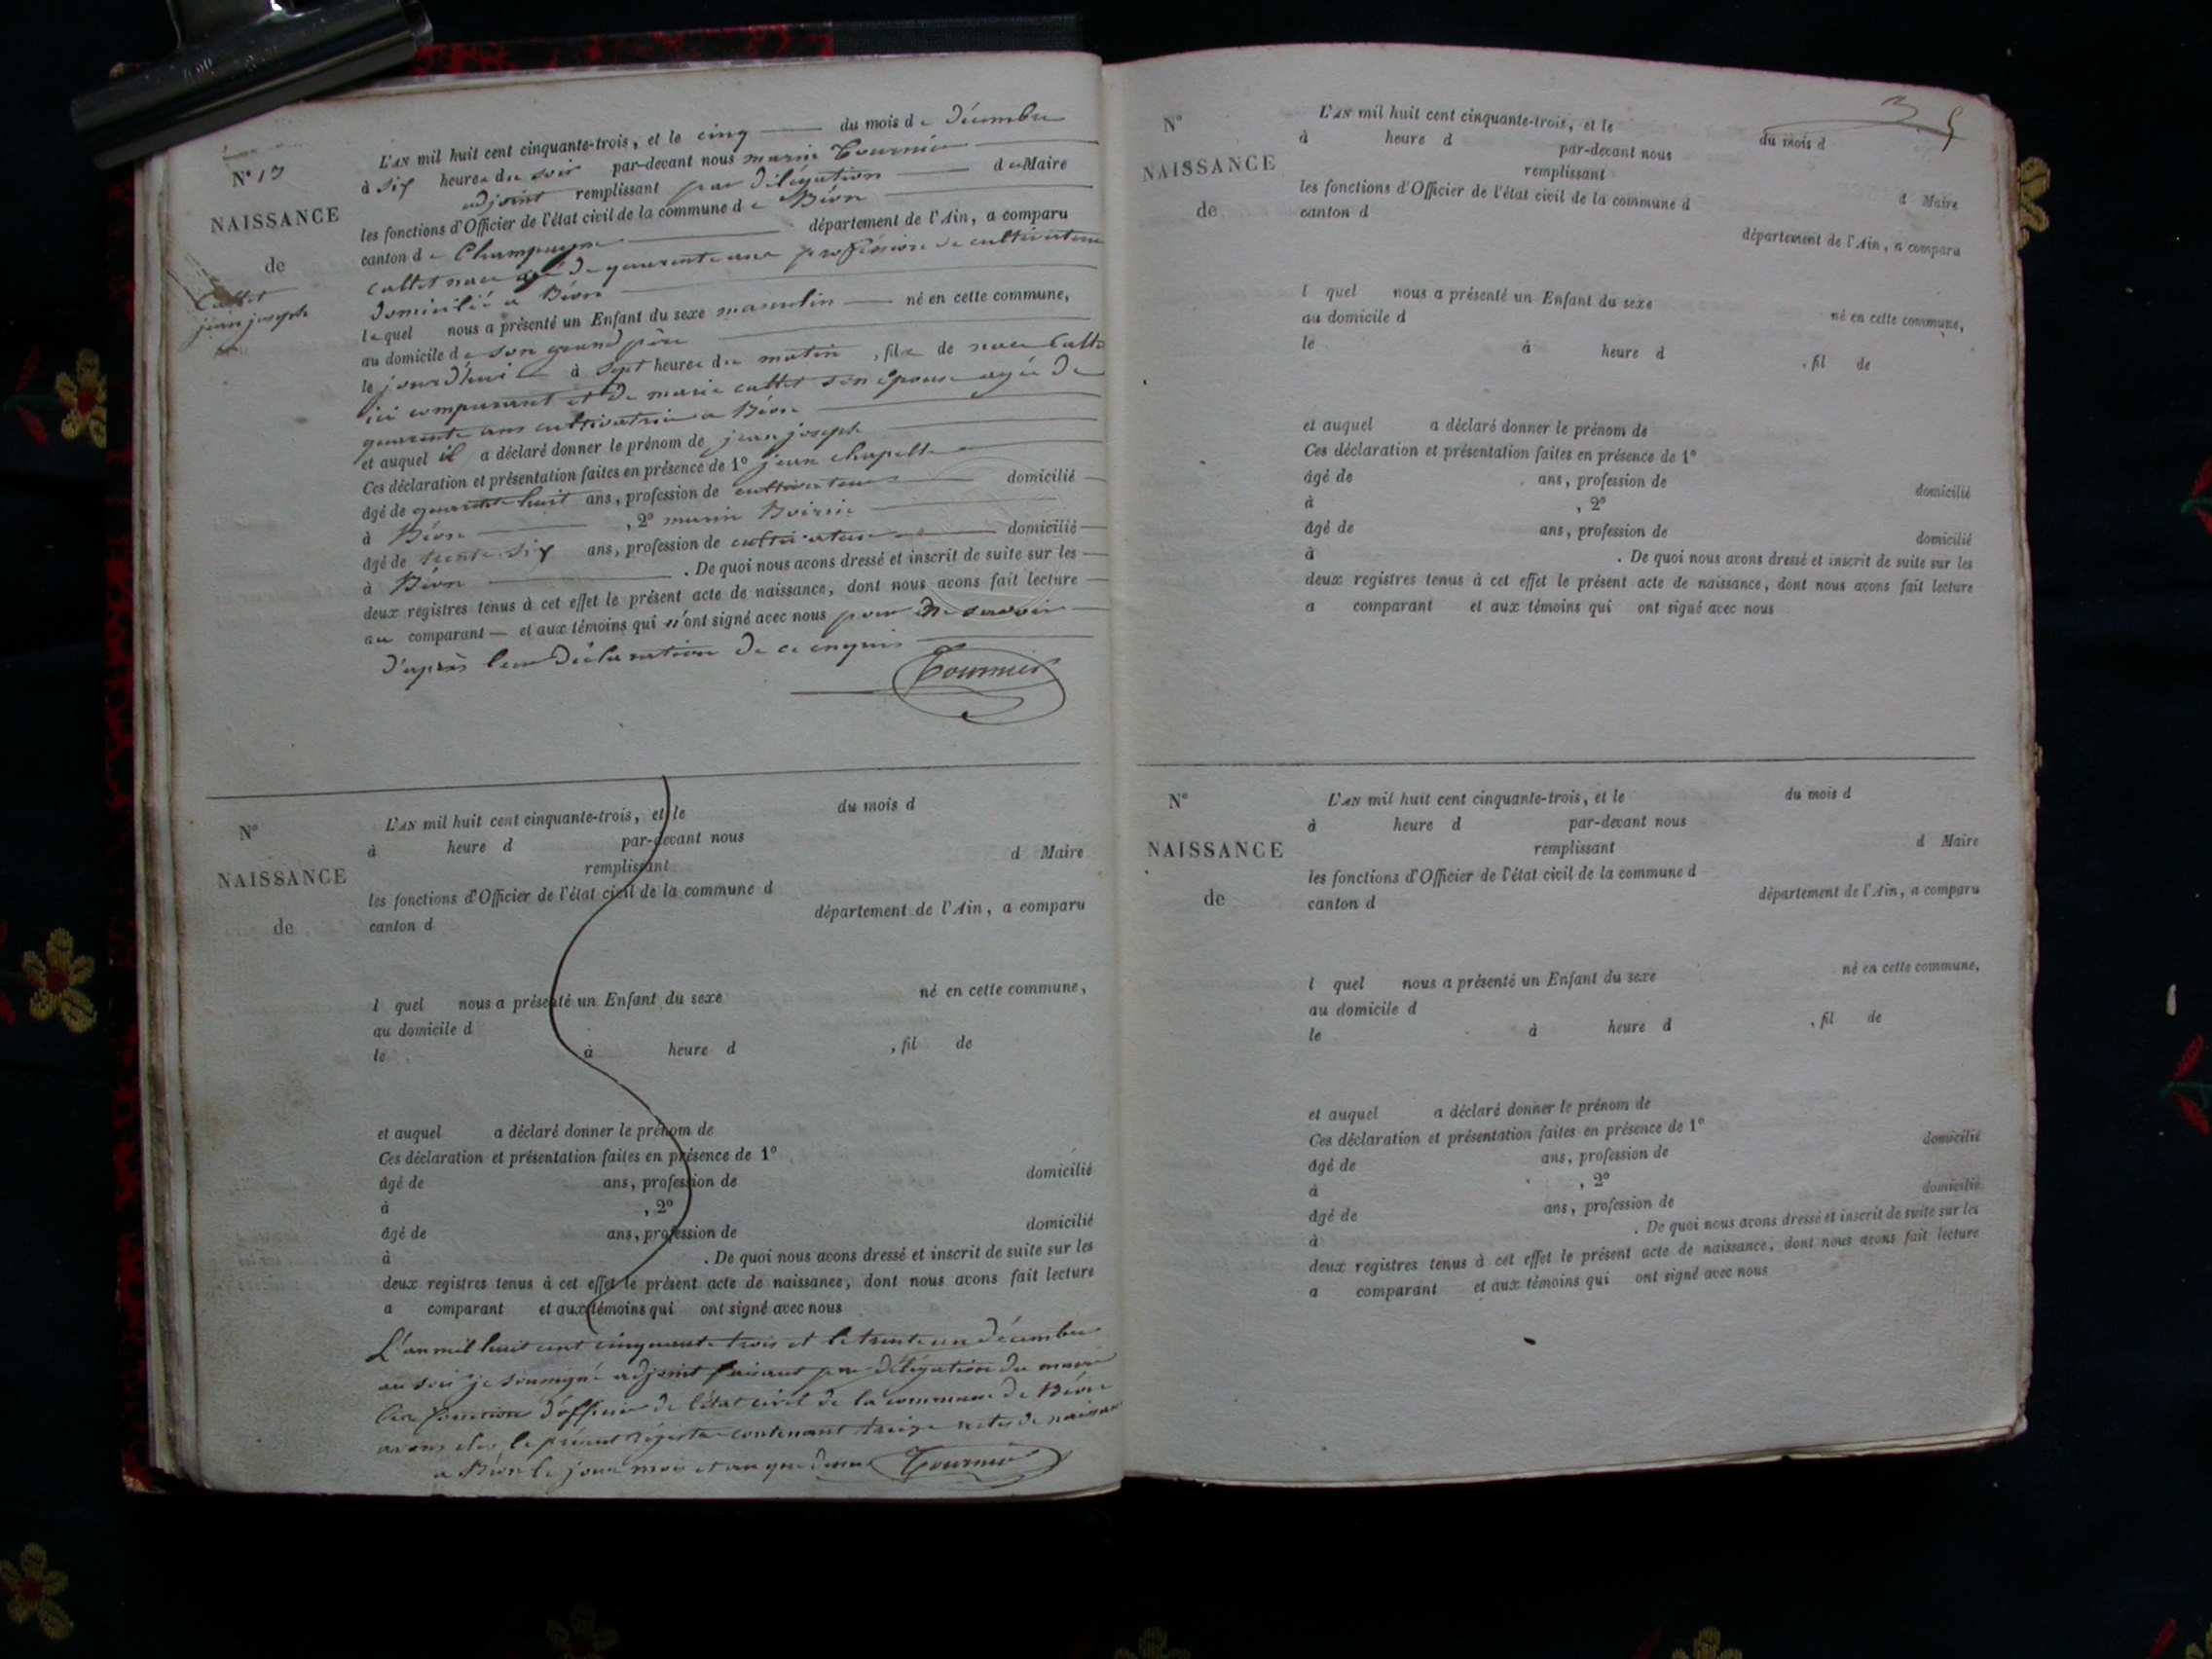 N° 13
NAISSANCE
de
Cattet
jean joseph
L'AN mil huit cent cinquante-trois, et le cinq du mois de Décembre
à six heures du soir par-devant nous marin Tournier
adjoint remplissant par délégation du Maire
les fonctions d'Officier de l'état civil de la commune de Béon
canton de Champagne département de l'Ain, a comparu
cattet âgé de quarante ans profession de cultivateur
domicilié a Béon
lequel nous a présenté un Enfant du sexe masculin né en cette commune,
au domicile de son grand père
le jourd'hui à sept heures du matin, fils de
ici comparant et de marie cattet son épouse agée de
quarante ans cultivatrice a Béon
et auquel il a déclaré donner le prénom de jean joseph
Ces déclaration et présentation faites en présence de 1° jean chapelle
âgé de quarante huit ans, profession de cultivateur domicilié
à Béon, 2° marin
âgé de trente-six ans, profession de cultivateur domicilié
à Béon. De quoi nous avons dressé et inscrit de suite sur les
deux registres tenus à cet effet le présent acte de naissance, dont nous avons fait lecture
au comparant et aux témoins qui n'ont signé avec nous pour ne savoir
d'après leur déclaration de ce enquis
Tournier
N°
NAISSANCE
de
L'AN mil huit cent cinquante-trois, et le du mois d
à heure d par-devant nous
remplissant d Maire
les fonctions d'Officier de l'état civil de la commune d
canton d département de l'Ain, a comparu
l quel nous a présenté un Enfant du sexe né en cette commune,
au domicile d
le à heure d , fil de
et auquel a déclaré donner le prénom de
Ces déclaration et présentation faites en présence de 1°
âgé de ans, profession de domicilié
à , 2°
âgé de ans, profession de domicilié
à . De quoi nous avons dressé et inscrit de suite sur les
deux registres tenus à cet effet le présent acte de naissance, dont nous avons fait lecture
a comparant et aux témoins qui ont signé avec nous
L'an mil huit cent cinquante trois et le trente un décembre
au soir je soussigné adjoint faisant par délégation du maire
les fonction d'officier de l'état civil de la commune de Béon
avons clos le présent régistre contenant treize actes de naissance
a Béon le jour mois et an que dessus Tournier
N°
NAISSANCE
de
L'AN mil huit cent cinquante-trois, et le du mois d
à heure d par-devant nous
remplissant d Maire
les fonctions d'Officier de l'état civil de la commune d
canton d département de l'Ain, a comparu
l quel nous a présenté un Enfant du sexe né en cette commune,
au domicile d
le à heure d , fil de
et auquel a déclaré donner le prénom de
Ces déclaration et présentation faites en présence de 1°
âgé de ans, profession de domicilié
à , 2°
âgé de ans, profession de domicilié
à . De quoi nous avons dressé et inscrit de suite sur les
deux registres tenus à cet effet le présent acte de naissance, dont nous avons fait lecture
a comparant et aux témoins qui ont signé avec nous
N°
NAISSANCE
de
L'AN mil huit cent cinquante-trois, et le du mois d
à heure d par-devant nous
remplissant d Maire
les fonctions d'Officier de l'état civil de la commune d
canton d département de l'Ain, a comparu
l quel nous a présenté un Enfant du sexe né en cette commune,
au domicile d
le à heure d , fil de
et auquel a déclaré donner le prénom de
Ces déclaration et présentation faites en présence de 1°
âgé de ans, profession de domicilié
à , 2°
âgé de ans, profession de domicilié
à . De quoi nous avons dressé et inscrit de suite sur les
deux registres tenus à cet effet le présent acte de naissance, dont nous avons fait lecture
a comparant et aux témoins qui ont signé avec nous